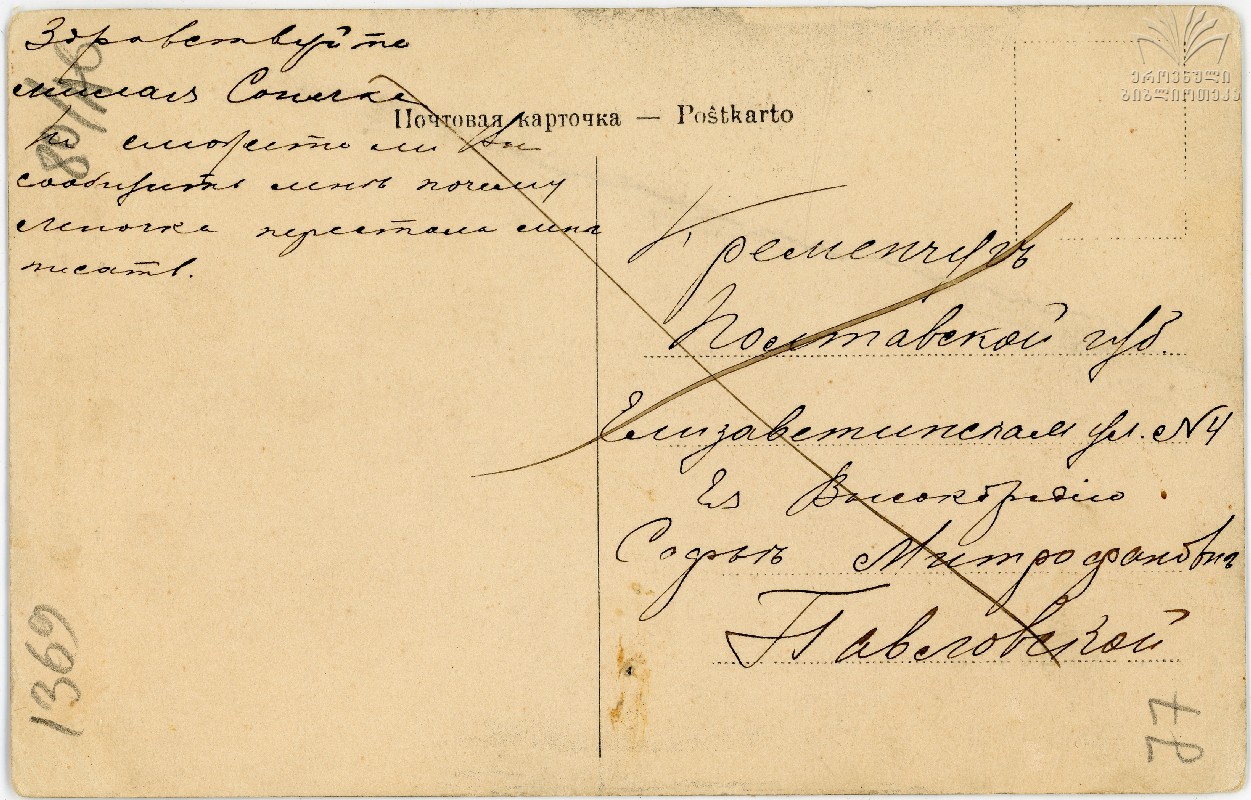 Здравствуйте
милая Сонечка
Не сможете ли Вы
сообщить мне почему
Леночка перестала мне
писать.
Почтовая карточка — Poŝtkarto
ეროვნული
ბიბლიოთეკა
Кременчугъ
Полтавской губ.
Елизаветинская ул. №4
Ея Высокобродію
Софьѣ Митрофановнѣ
Павловской
1369
77